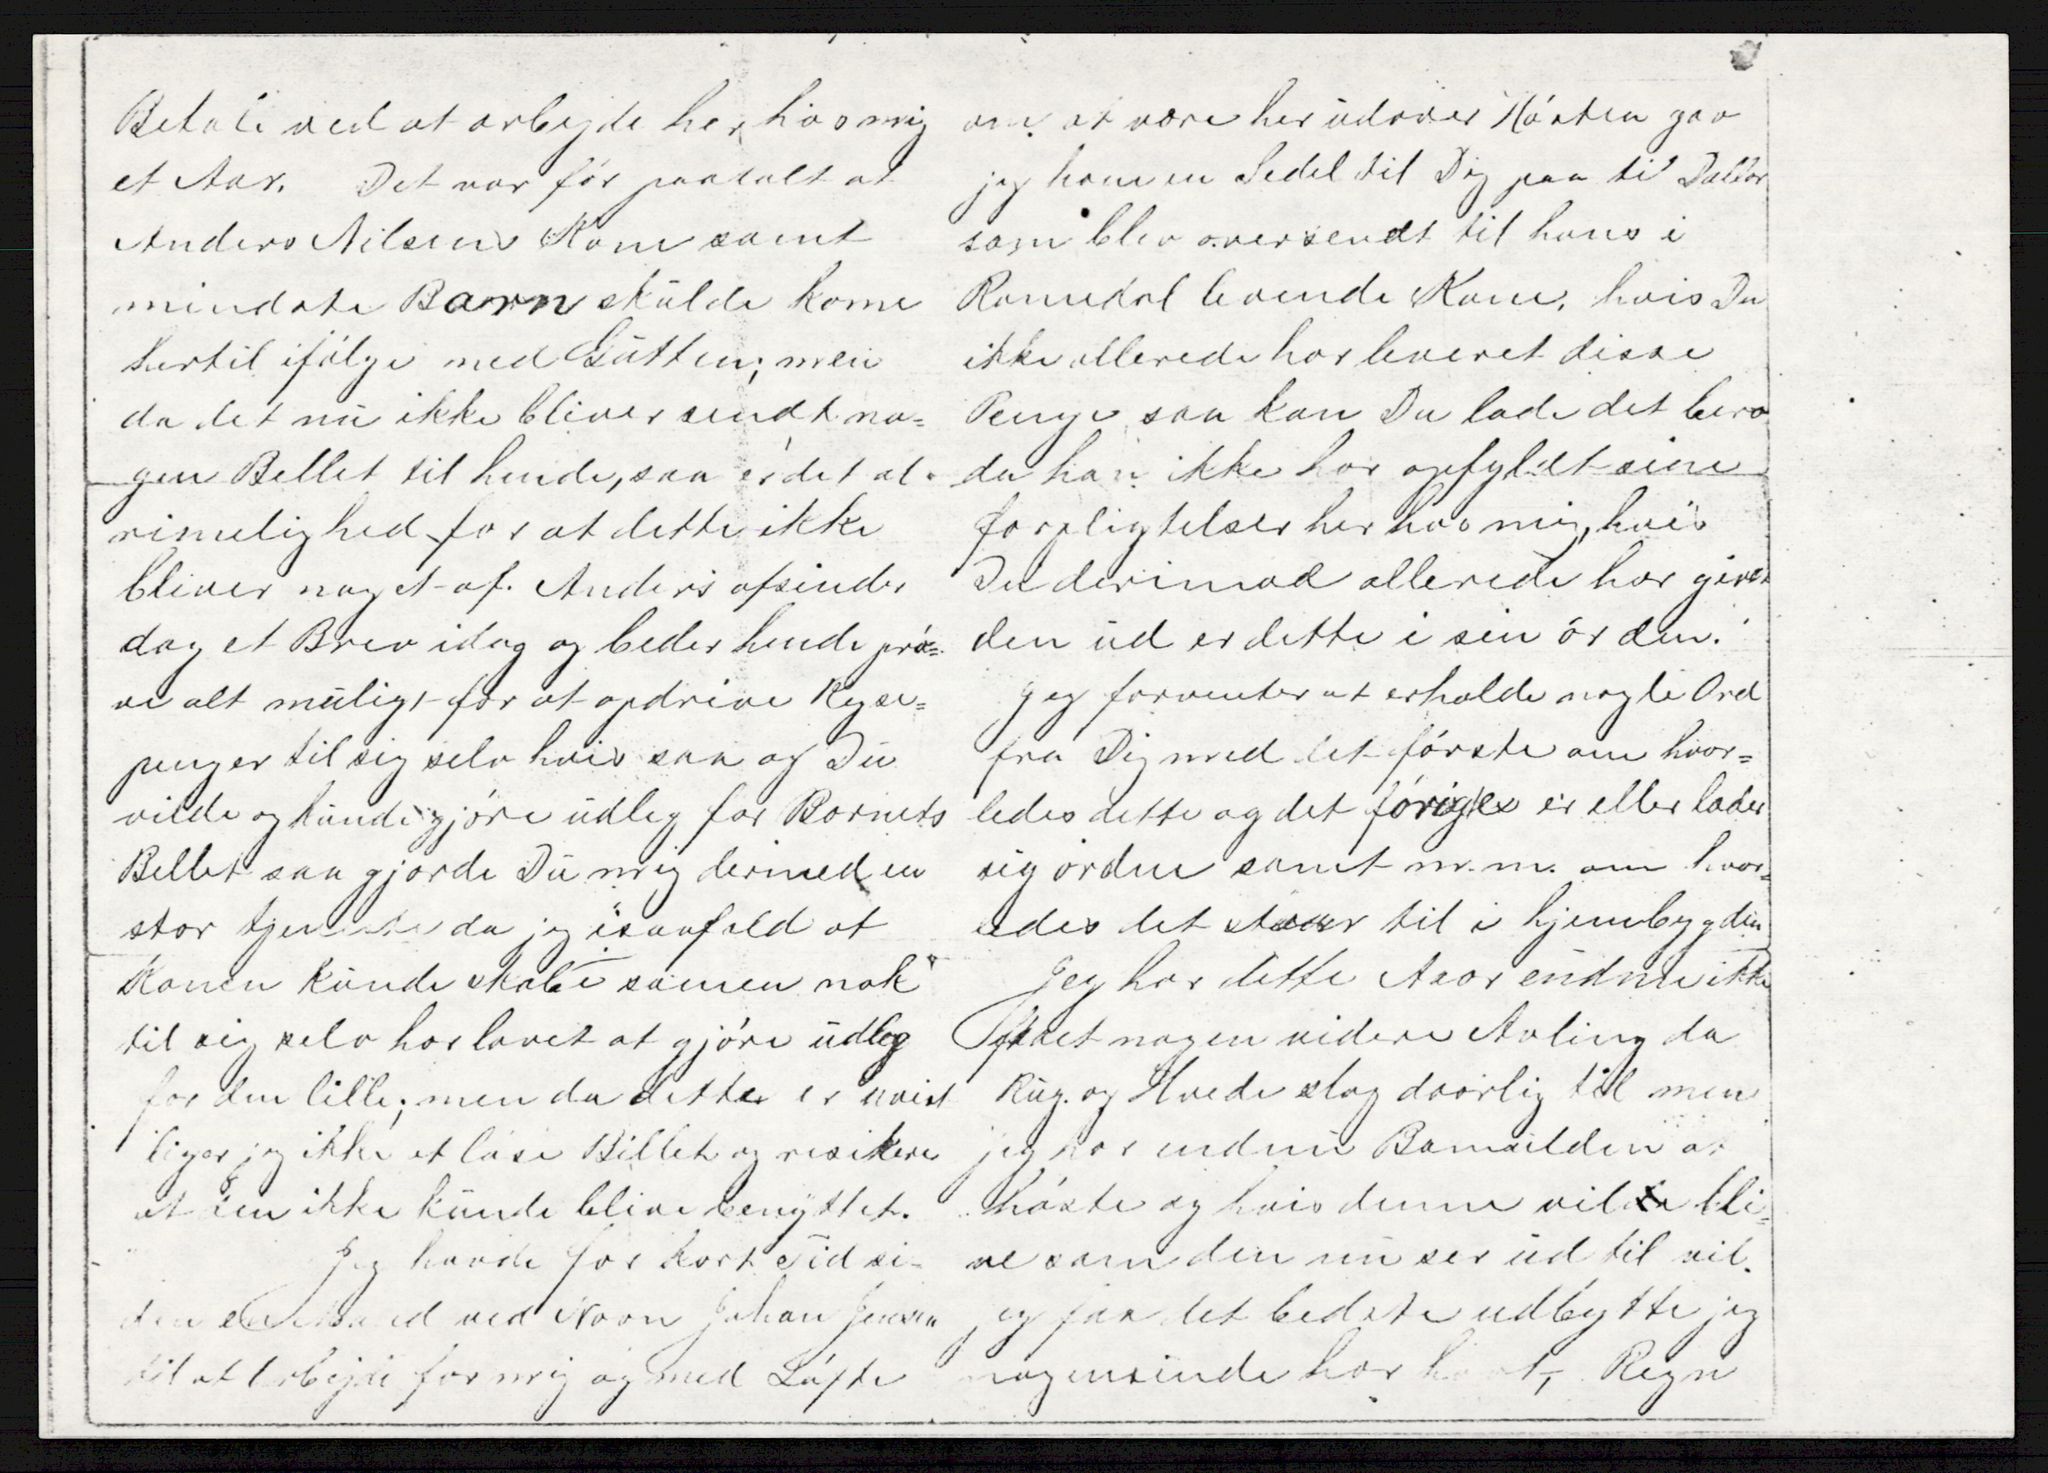 Betale ved at arbejde her hos mig
et Aar. Det var før paatalt at
Anders Nilsens Kone samt
mindste Barn skulde kome
hertil ifølge med Gutten; men
da det nu ikke bliver sendt no=
gen Bellet til hende, saa er det al.
rimelighed for at dette ikke
bliver noget af. Anders afsender
dog et Brev idag og beder hende prø=
ve alt muligt for at opdrive Reyse=
penger til sig selv hvis saa og Du
vilde og kunde gjøre udleg for Barnets
Bellet saa gjorde Du mig dermed en
stor tjeneste da jeg isaafald at
Konen kunde skabe samen nok
til sig selv har lovet at gjøre udleg
for den lille; men da dette er uvist
liger jeg ikke at løse Billet og resikere
at den ikke kunde blive benyttet.
Jeg havde for kort Tid si-
den ved Navn Johan Jensen
til at arbejde for mig og med Løfte
om at være her udover Høsten gav
jeg ham en Sedel til Dig paa ti Dollar
som blev oversendt til hans i
Romedal levende Kone. hvis Du
ikke allerede har leveret disse
Penge saa kan Du lade det bero
da han ikke har opfyldt sine
forpligtelser her hos mig, hvis
Du derimod allerede har givet
den ud er dette i sin orden.
Jeg forventer at erholde nogle Ord
fra Dig med det første om hvor=
ledes dette og det førige er eller lader
sig ordne samt m.m. om hvor=
ledes det staar til i hjembygden
Jeg har dette Aar endnu ikke
faaet nogen videre Avling da
Rug og Hvede slog daarlig til men
jeg har endnu Bomulden at
høste og hvis denne vil bli=
ve som den nu ser ud til vil
jeg faa det bedste udbytte jeg
nogensinde har havt, Regn